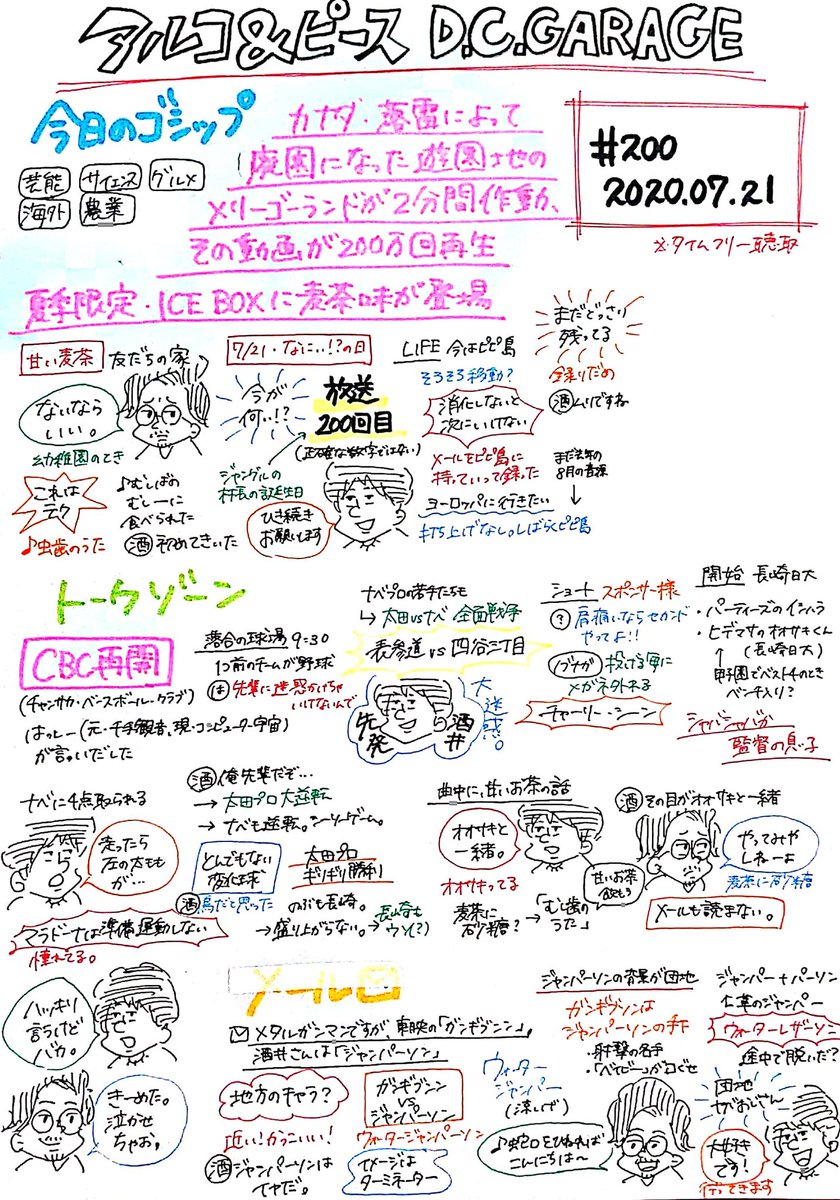 アルコ&ピース D.C.GARAGE
今日のゴシップ
芸能 サイエンス グルメ
海外 農業
カナダ・落雷によって
廃園になった遊園地の
メリーゴーランドが2分間作動、
その動画が200万回再生
夏季限定・ICE BOXに麦茶味が登場
#200
2020.07.21
※タイムフリー聴取
甘い麦茶 友だちの家
ないなら
いい。
幼稚園のとき
これは
テク
♪むしばの
むしーに
食べられた
♪虫歯のうた
酒 初めてきいた
7/21・なにい!?の日
今が
何い!?
放送
200回目
(正確な数字ではない)
ジャングルの
村長の誕生日
ひき続き
お願いします
LIFE 今はピピ島
そろそろ移動?
消化しないと
次にいけない
メールをピピ島に
持っていって録った
ヨーロッパに行きたい
打ち上げなし。しばらくピピ島
まだどっさり
残ってる
録りだめ
酒 ムリですね
まだ去年の
8月の音源
トークゾーン
CBC再開
(チャンサカ・ベースボール・クラブ)
はっしー(元・千手観音、現・コンピューター宇宙)
が言いだした
落合の球場 9:30
1つ前のチームが野球
は 先輩に迷惑かけちゃ
いけないんで
ナベプロの若手たちも
→太田vsナベ 全面戦争
表参道vs四谷三丁目
先発
酒井
大迷惑。
ショート スポンサー様
? 肩痛いならセカンド
やってよ!!
ノブナガ 投げる毎に
メガネ外れる
チャーリー・シーン
開始 長崎日大
・パーティーズのインハラ
・ヒデマサのオオサキくん
(長崎日大)
↑
甲子園でベスト4のとき
ベンチ入り?
シャバシャバが
監督の息子
ナベに4点取られる
走ったら
左の太もも
が…
マラドーナは準備運動しない
憧れてる。
酒 俺先輩だぞ…
→太田プロ大逆転
→ナベも逆転。シーソーゲーム。
とんでもない
変化球
酒 鳥だと思った
太田プロ
ギリギリ勝利
のぶも長崎。
→盛り上がらない。→長崎も
ウソ(?)
曲中に、甘いお茶の話
オオサキと
一緒。
オオサキってる
麦茶に
砂糖?
→「むし歯の
うた」
甘いお茶
飲もう
酒 その目がオオサキと一緒
やってみや
しねーよ
麦茶に砂糖
メールも読まない。
ハッキリ
言うけど
バカ。
きーめた。
泣かせ
ちゃお。
メール
メタルガンマンですが、東映の「ガンギブソン」、
酒井さんは「ジャンパーソン」
地方のキャラ?
近い!かっこいい!
酒 ジャンパーソンは
イヤだ。
ガンギブソン
VS
ジャンパーソン
ウォータージャンパーソン
イメージは
ターミネーター
ウォーター
ジャンパー
(涼しげ)
♪蛇口をひねれば
こんにちは〜
ジャンパーソンの背景が団地
ガンギブソンは
ジャンパーソンの手下
・射撃の名手
・「ベイビー」が口ぐせ
ジャンパー+パーソン
上革のジャンパー
ウォーターレザーソン
途中で脱いだ?
団地
ヤバおじさん
大好き
です!
行ってきます